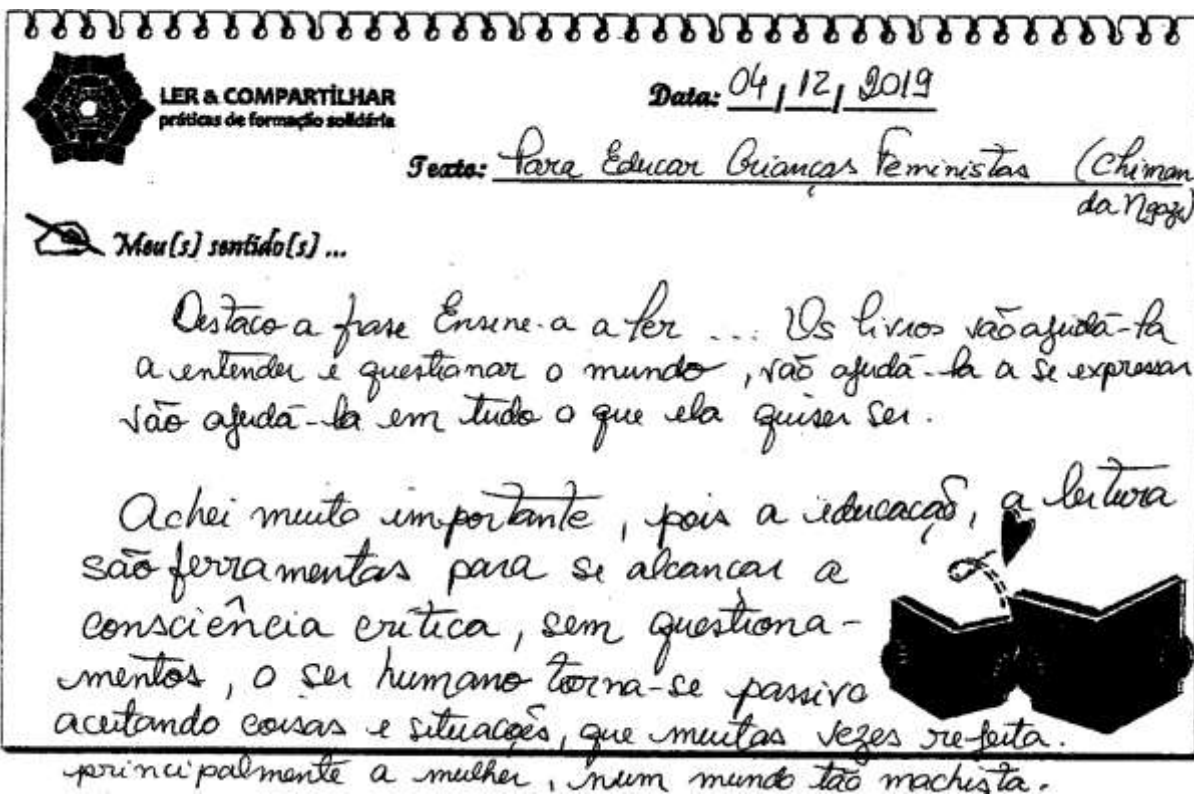 LER & COMPARTILHAR
práticas de formação solidária
Data: 04/12/2019
Texto: Para Educar Crianças Feministas (Chiman
da Ngozi)
Meu(s) sentido(s) ...
Destaco a frase Ensine-a a ler ... Os livros vão ajudá-la
a entender e questionar o mundo, vão ajudá-la a se expressar
vão ajudá-la em tudo o que ela quiser ser.
Achei muito importante, pois a educação, a leitura
são ferramentas para se alcancar a
consciência crítica, sem questiona-
mentos, o ser humano torna-se passivo
aceitando coisas e situações, que muitas vezes rejeita.
principalmente a mulher, num mundo tão machista.